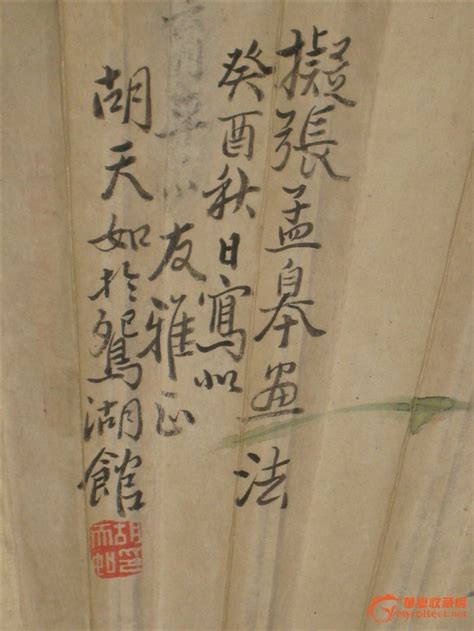 擬張孟皋畫法
癸酉秋日寫似
友雅正
胡天如於鴛湖館
胡印天如
華夏收藏網
mycollect.net